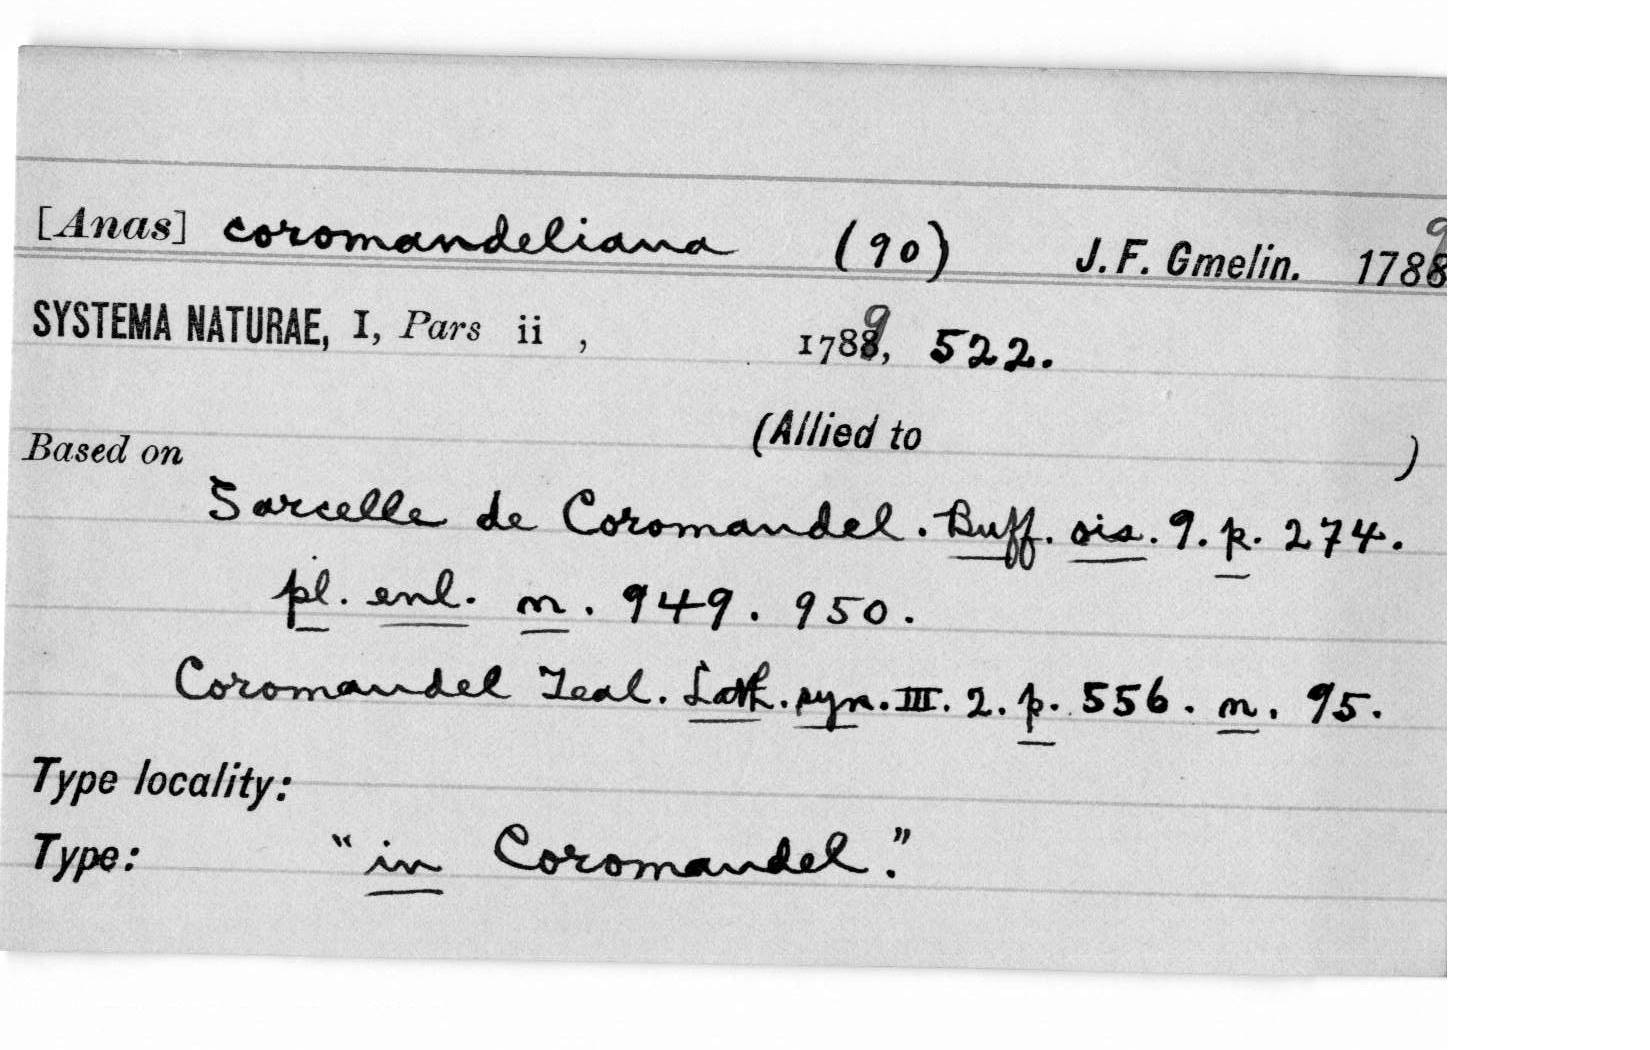 [Anas] coromandeliana (90) J. F. Gmelin. 1789
SYSTEMA NATURAE, I, Pars ii , 1789, 522.
Based on (Allied to )
Sarcelle de Coromandel. Buff. ois. 9. p. 274.
pl. enl. n. 949. 950.
Coromandel Teal. Lath. syn. III. 2. p. 556. n. 95.
Type locality:
Type: "in Coromandel."